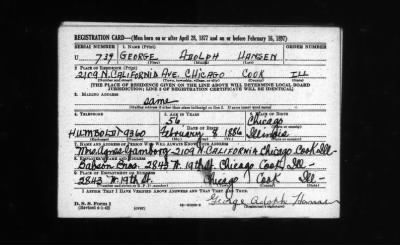 REGISTRATION CARD—(Men born on or after April 28, 1877 and on or before February 16, 1897)
SERIAL NUMBER 1. NAME (Print) ORDER NUMBER
U 739 GEORGE ADOLPH HANSEN
2. PLACE OF RESIDENCE (Print)
2109 N. CALIFORNIA AVE. CHICAGO COOK ILL
[THE PLACE OF RESIDENCE GIVEN ON THE LINE ABOVE WILL DETERMINE LOCAL BOARD
JURISDICTION; LINE 2 OF REGISTRATION CERTIFICATE WILL BE IDENTICAL]
3. MAILING ADDRESS
same
4. TELEPHONE 5. AGE IN YEARS 6. PLACE OF BIRTH
56 Chicago
DATE OF BIRTH
HUMBOLDT 9360 February 8 1886 Illinois
7. NAME AND ADDRESS OF PERSON WHO WILL ALWAYS KNOW YOUR ADDRESS
2109 N. CALIFORNIA Chicago Cook Ill-
8. EMPLOYER'S NAME AND ADDRESS
Babson Bros. 2843 W. 19th St. Chicago Cook, Ill-
9. PLACE OF EMPLOYMENT OR BUSINESS
2843 W. 19th St. Chicago Cook Ill-
I AFFIRM THAT I HAVE VERIFIED ABOVE ANSWERS AND THAT THEY ARE TRUE.
D. S. S. Form 1
(Revised 4-1-42)
George Adolph Hansen